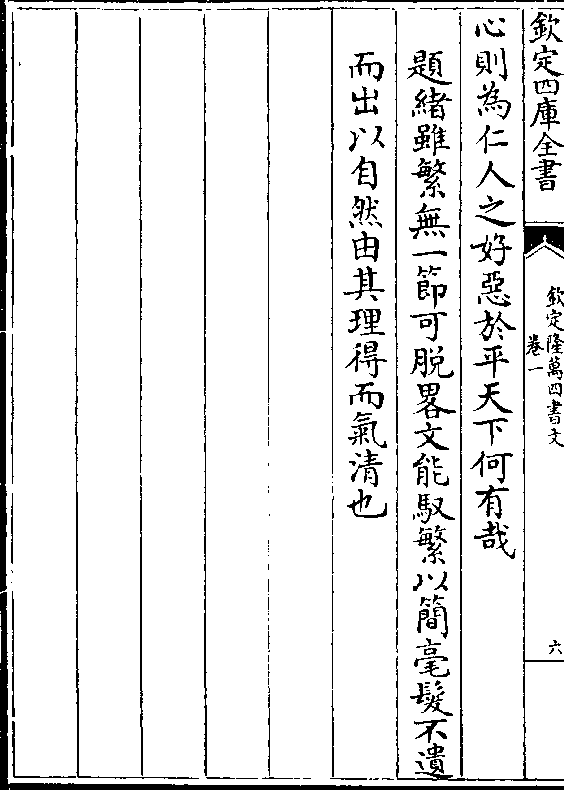 欽定四庫全書
欽定隆萬四書文
卷一
六
心則為仁人之好惡於平天下何有哉
題緒雖繁無一節可脱畧文能馭繁以簡毫髮不遺
而出以自然由其理得而氣清也